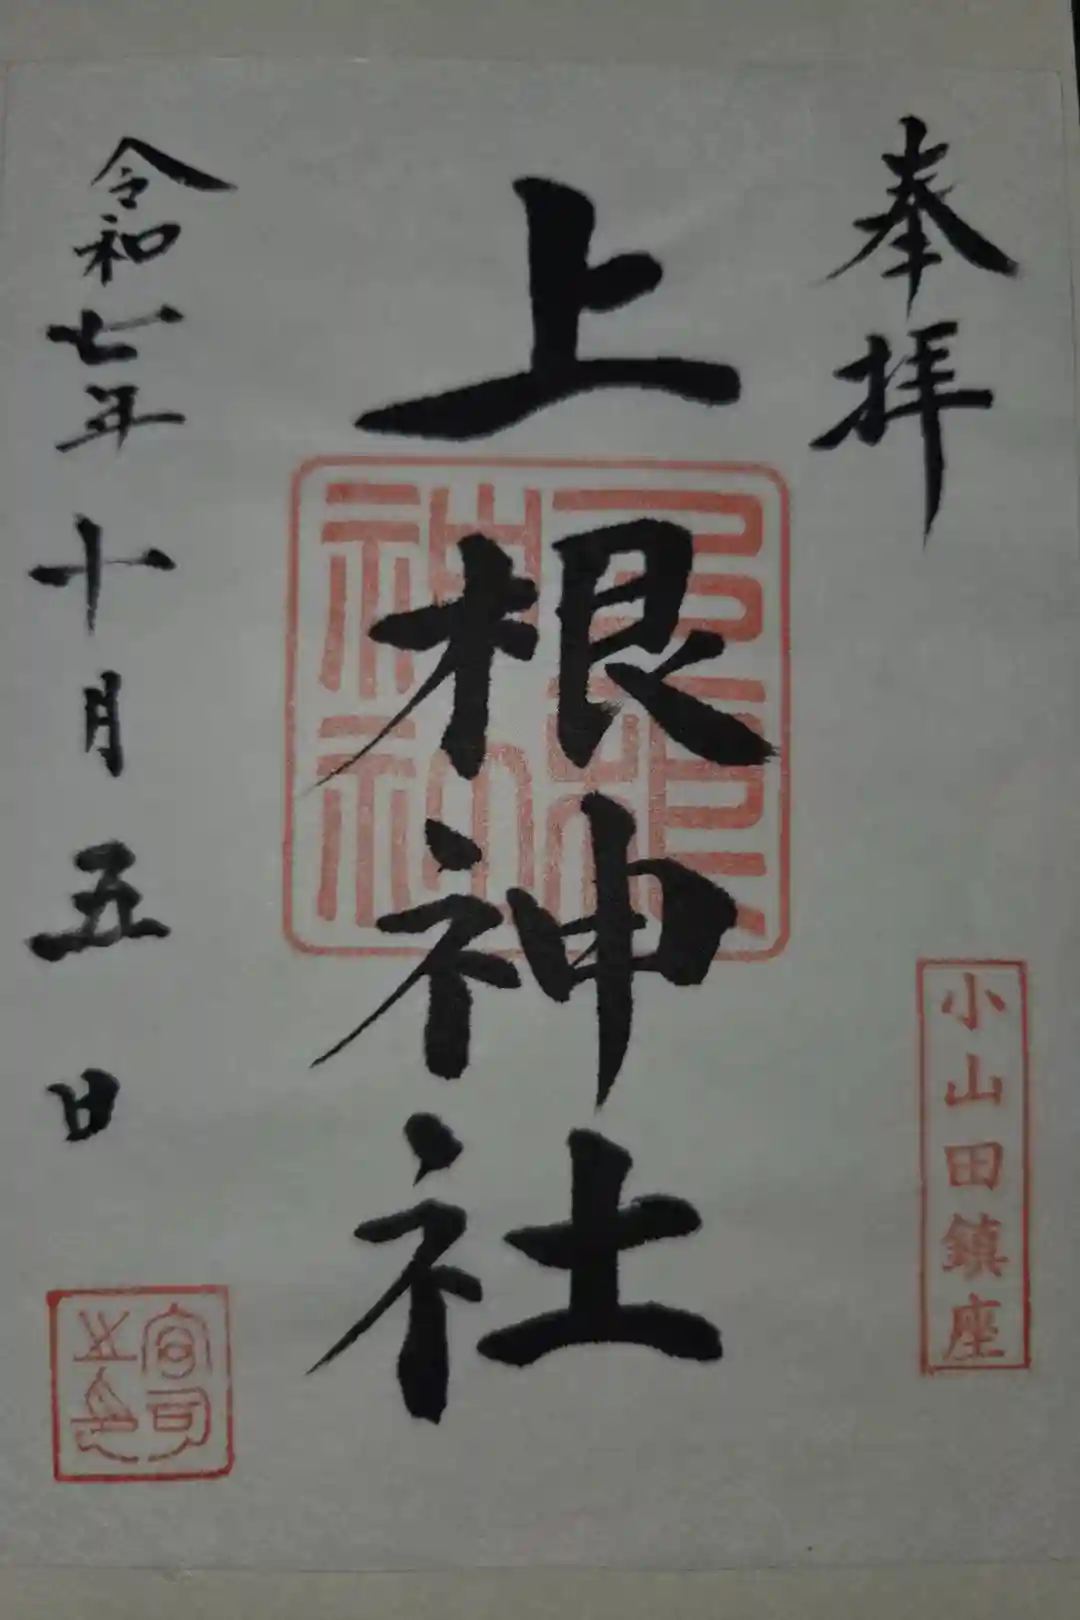 奉拝
小山田鎮座
上根神社
令和七年十月五日
宮司之印